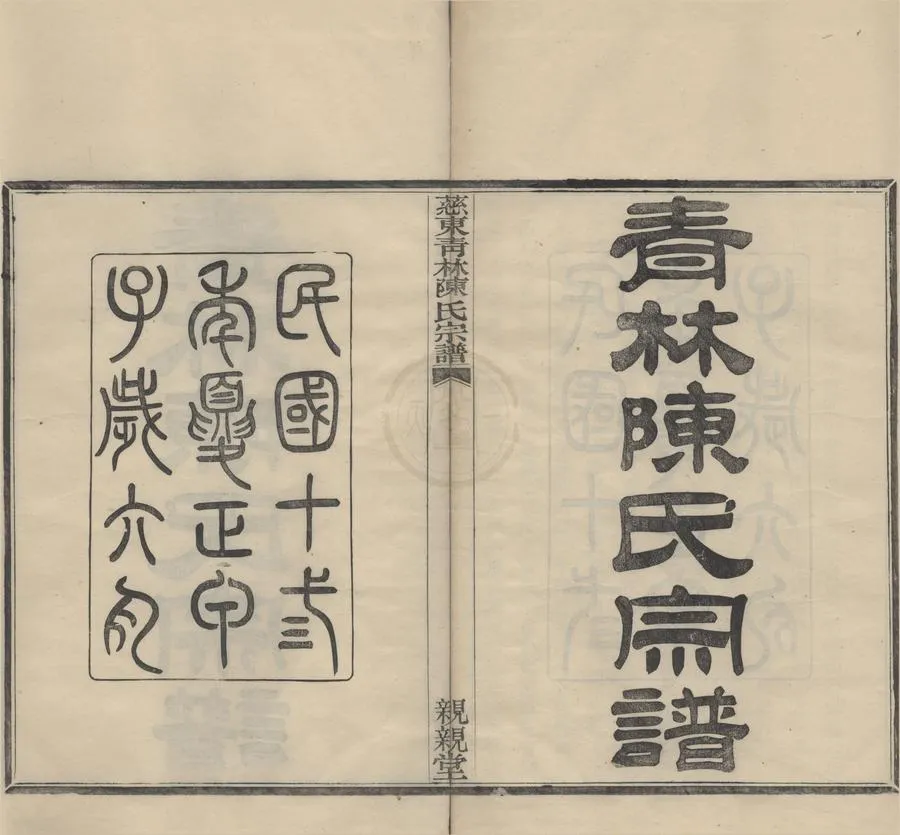 青林陳氏宗譜
慈東青林陳氏宗譜
親親堂
民國十弎
年夏正甲
子歲六